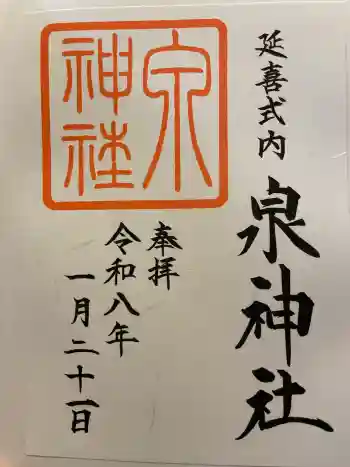 延喜式内
泉神社
泉
神社
奉拝
令和八年
一月二十一日